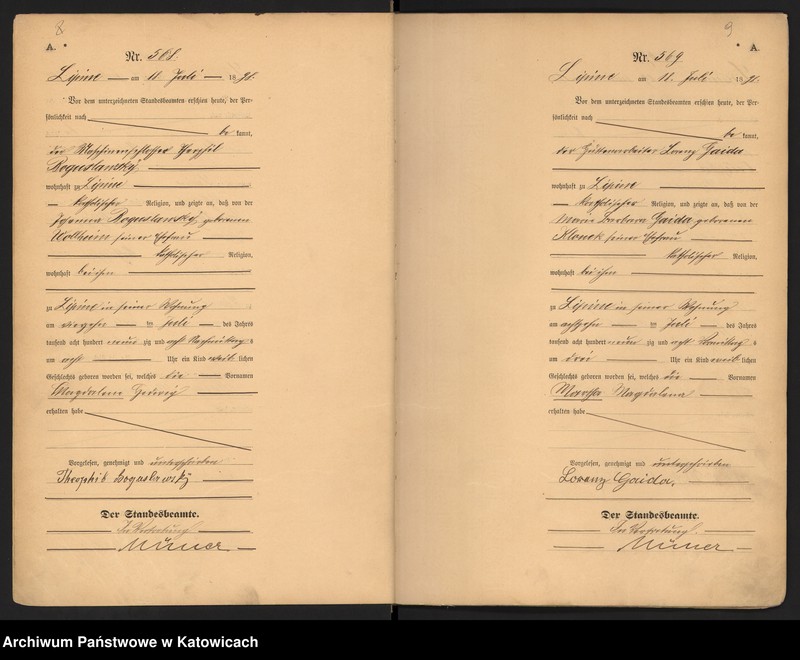 8
A.
Nr. 568.
Lipine am 11 Juli 1898.
Vor dem unterzeichneten Standesbeamten erschien heute, der Per-
sönlichkeit nach
be kannt,
der Maschinenschlosser
Boguslawsky
wohnhaft zu Lipine
katholischer Religion, und zeigte an, daß von der
Johanna Boguslawsky geborenen
Wollheim seiner Ehefrau
katholischer Religion,
wohnhaft bei ihm
zu Lipine in seiner Wohnung
am ten Juli des Jahres
tausend acht hundert neun zig und acht Nachmittag s
um acht Uhr ein Kind weib lichen
Geschlechts geboren worden sei, welches die Vornamen
Magdalena Hedwig
erhalten habe
Vorgelesen, genehmigt und unterschrieben
Theophil Boguslawsky
Der Standesbeamte.
In Vertretung
9
A.
Nr. 569.
Lipine am 11. Juli 1898.
Vor dem unterzeichneten Standesbeamten erschien heute, der Per-
sönlichkeit nach
be kannt,
der Hüttenarbeiter Lorenz Gaida
wohnhaft zu Lipine
katholischer Religion, und zeigte an, daß von der
Maria Barbara Gaida geborenen
seiner Ehefrau
katholischer Religion,
wohnhaft bei ihm
zu Lipine in seiner Wohnung
am ten Juli des Jahres
tausend acht hundert neun zig und acht Vormittag s
um drei Uhr ein Kind weib lichen
Geschlechts geboren worden sei, welches die Vornamen
Martha Magdalena
erhalten habe
Vorgelesen, genehmigt und unterschrieben
Lorenz Gaida.
Der Standesbeamte.
In Vertretung.
Archiwum Państwowe w Katowicach